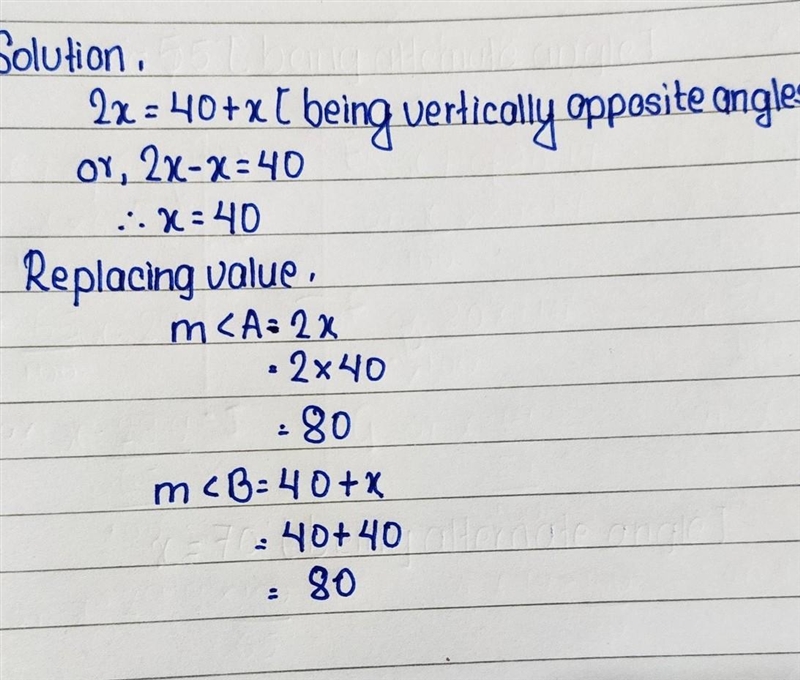 Solution.
2x = 40 + x [ being vertically opposite angles
or, 2x - x = 40
∴ x = 40
Replacing value.
m < A = 2x
= 2 × 40
= 80
m < B = 40 + x
= 40 + 40
= 80